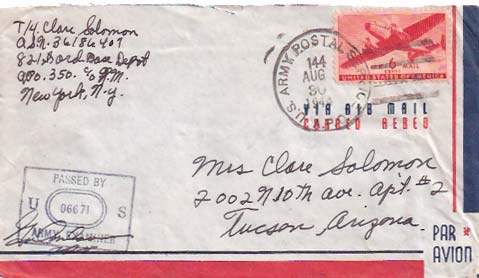 T/4. Clare Solomon
ASN-36186407
821st Ord Base Depot
APO. 350. c/o P.M.
New York, N.Y.
U.S. ARMY POSTAL SERVICE
144
AUG
30
6
CENTS
MAIL
UNITED STATES OF AMERICA
VIA AIR MAIL
CORREO AEREO
PASSED BY
U 06671 S
ARMY EXAMINER
Mrs Clare Solomon
2002 N 10th ave. Apt. #2
Tucson Arizona.
PAR
AVION